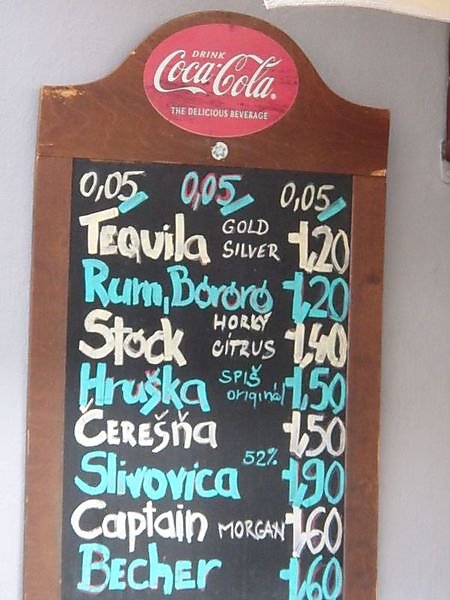 DRINK
Coca-Cola
THE DELICIOUS BEVERAGE
0,05 0,05 0,05
TEQUILA GOLD SILVER 1,20
Rum, Bororo 1,20
Stock HORKÝ CITRUS 1,40
Hruška SPIŠ originál 1,50
ČEREŠŇA 1,50
Slivovica 52% 1,90
Captain MORGAN 1,60
Becher 1,60